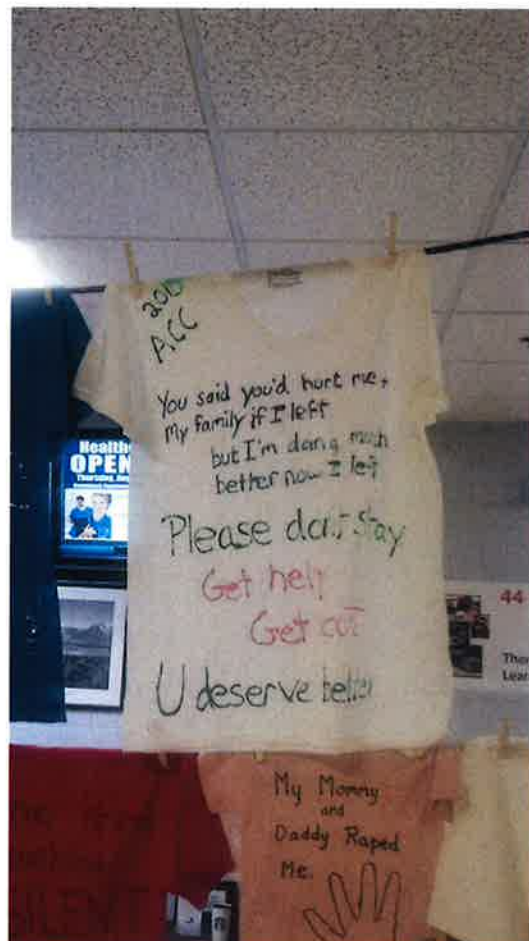 ACC
You said you'd hurt me,
My family if I left
but I'm doing much
better now I left
Please don't stay
Get help
Get out
U deserve better
Health
OPEN
Thursday,
44
My Mommy
and
Daddy Raped
Me.
SILENT